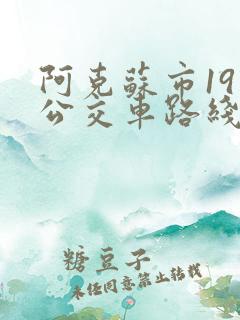 阿克蘇市19
公交車路綫
糖豆子
未经同意禁止转载